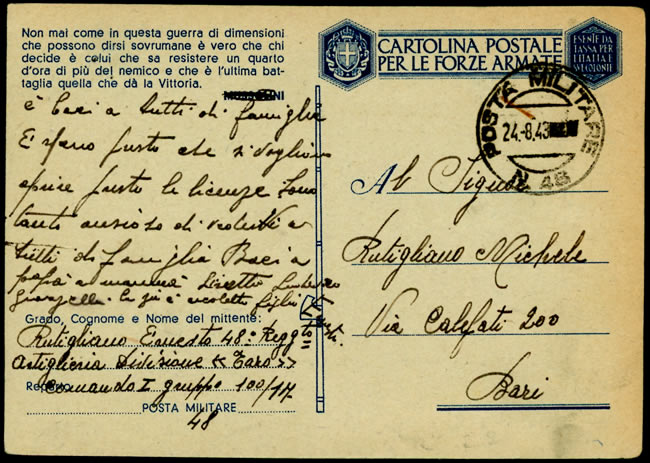 Non mai come in questa guerra di dimensioni
che possono dirsi sovrumane è vero che chi
decide è colui che sa resistere un quarto
d'ora di più del nemico e che è l'ultima bat-
taglia quella che dà la Vittoria.
è Baci a tutti di famiglia
E spero presto che si vogliono
aprire presto le licenze Sono
tanto ansioso di vedervi a
tutti di famiglia Baci a
papà a mamma
Grado, Cognome e Nome del mittente:
Rutigliano Ernesto 48° Regg
Artiglieria Divisione "Taro"
Reparto
Comando I gruppo 100/17
POSTA MILITARE
48
CARTOLINA POSTALE
PER LE FORZE ARMATE
ESENTE DA
TASSA PER
L'ITALIA E
SUE COLONIE
POSTA MILITARE
24.-8.43
N. 48
Al Signor
Rutigliano Michele
Via Calefati 200
Bari